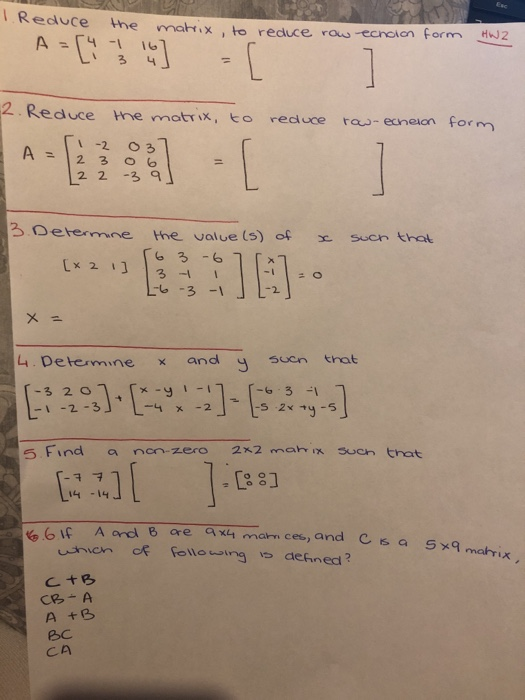 1 Reduce the matrix, to reduce row-echelon form HW2
A = [4 -1 16
1 3 4] = [ ]
2. Reduce the matrix, to reduce row-echelon form
A = [1 -2 0 3
2 3 0 6
2 2 -3 9] = [ ]
3 Determine the value(s) of x such that
[x 2 1] [6 3 -6
3 -1 1
-6 -3 -1] [x
-1
-2] = 0
X =
4. Determine x and y such that
[-3 2 0
-1 -2 -3] + [x-y 1 -1
-4 x -2] = [-6 3 -1
-5 2x+y -5]
5 Find a non-zero 2x2 matrix such that
[-7 7
14 -14] [ ] = [0 0
0 0]
6 If A and B are 9x4 matrices, and C is a 5x9 matrix,
which of following is defined?
C + B
CB - A
A + B
BC
CA